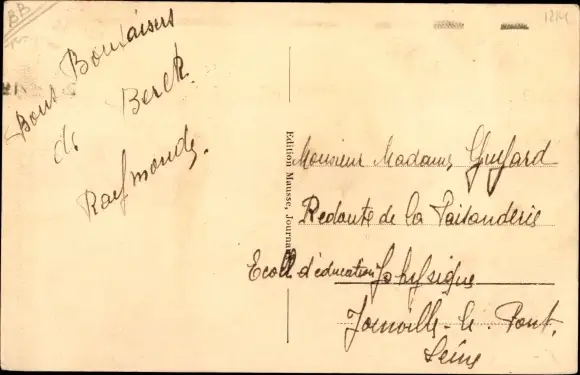 BB
Bons Baisers
de Berck
Raymonde.
Edition Mausse, Journa
Monsieur Madame Guyard
Redoute de la Faisanderie
Ecole d'éducation Physique
Joinville-le-Pont.
Seine